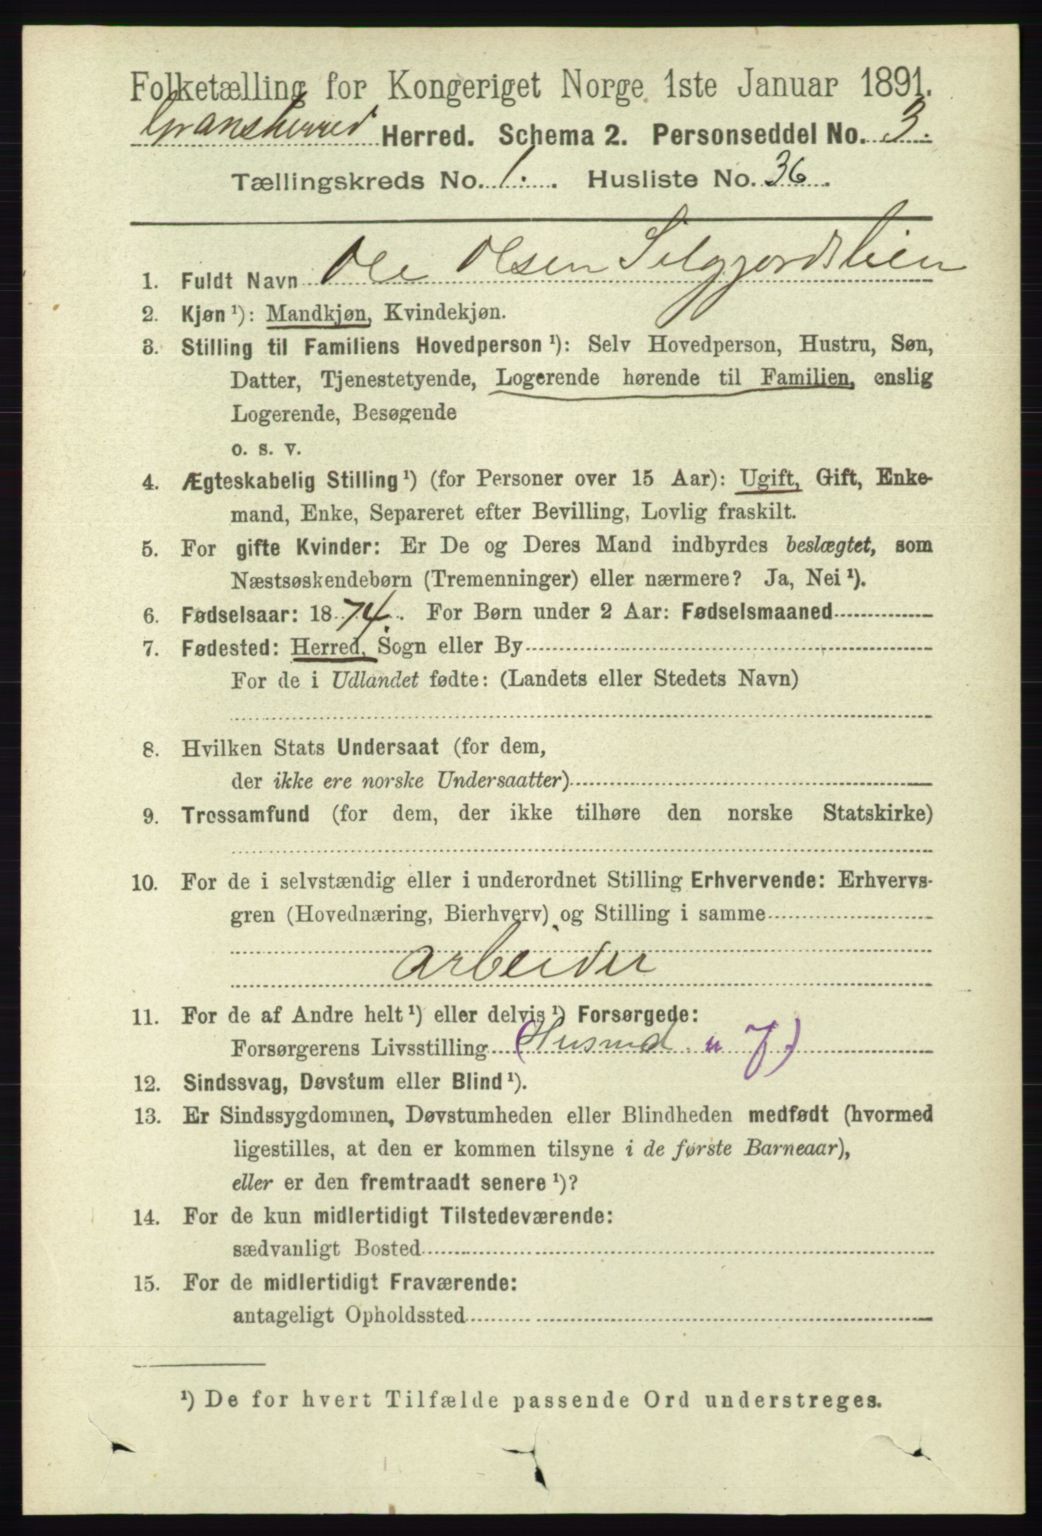 Folketælling for Kongeriget Norge 1ste Januar 1891.
Gransherred Herred. Schema 2. Personseddel No. 3.
Tællingskreds No. 1. Husliste No. 36.
1. Fuldt Navn Ole Olsen Selgjordslien
2. Kjøn ¹): Mandkjøn, Kvindekjøn.
3. Stilling til Familiens Hovedperson ¹): Selv Hovedperson, Hustru, Søn,
Datter, Tjenestetyende, Logerende hørende til Familien, enslig
Logerende, Besøgende
o. s. v.
4. Ægteskabelig Stilling ¹) (for Personer over 15 Aar): Ugift, Gift, Enke-
mand, Enke, Separeret efter Bevilling, Lovlig fraskilt.
5. For gifte Kvinder: Er De og Deres Mand indbyrdes beslægtet, som
Næstsøskendebørn (Tremenninger) eller nærmere? Ja, Nei ¹).
6. Fødselsaar: 1874. For Børn under 2 Aar: Fødselsmaaned
7. Fødested: Herred, Sogn eller By
For de i Udlandet fødte: (Landets eller Stedets Navn)
8. Hvilken Stats Undersaat (for dem,
der ikke ere norske Undersaatter)
9. Trossamfund (for dem, der ikke tilhøre den norske Statskirke)
10. For de i selvstændig eller i underordnet Stilling Erhvervende: Erhvervs-
gren (Hovednæring, Bierhverv) og Stilling i samme
Arbeider
11. For de af Andre helt ¹) eller delvis ¹) Forsørgede:
Forsørgerens Livsstilling (Husmd
12. Sindssvag, Døvstum eller Blind ¹).
13. Er Sindssygdommen, Døvstumheden eller Blindheden medfødt (hvormed
ligestilles, at den er kommen tilsyne i de første Barneaar),
eller er den fremtraadt senere ¹)?
14. For de kun midlertidigt Tilstedeværende:
sædvanligt Bosted
15. For de midlertidigt Fraværende:
antageligt Opholdssted
¹) De for hvert Tilfælde passende Ord understreges.